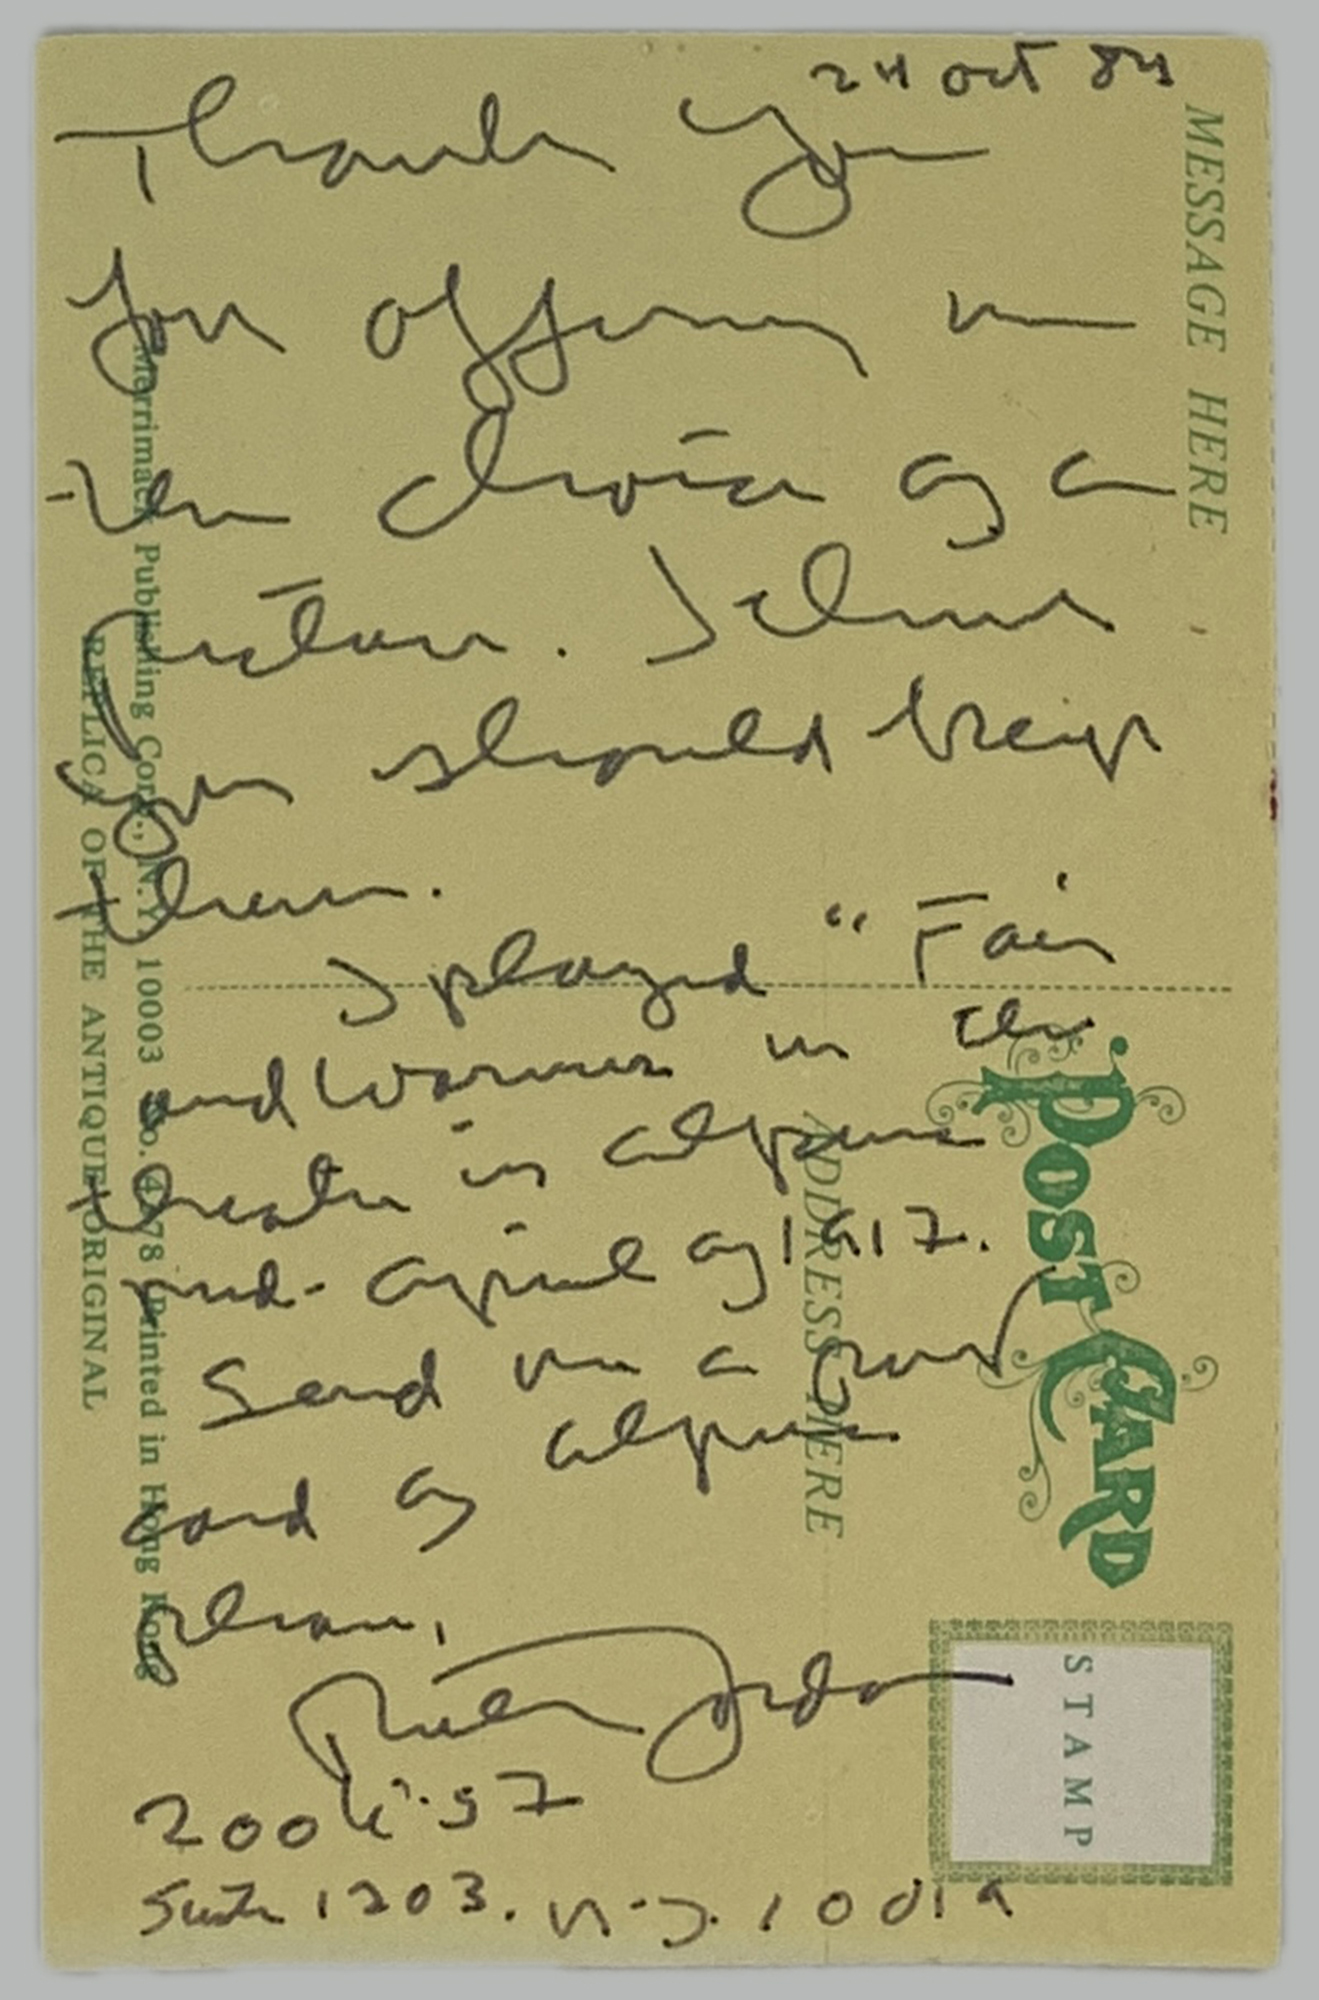 24 Oct 84
Thank you
for offering me
the choice of a
picture. I think
you should keep
them.
I played "Fair
and Warmer in the
theatre in Alpena
mid-April of 1917.
Send me a post
card of Alpena
please,
Ruth Gordon
200 W. 57
Suite 1203. N.Y. 10019
MESSAGE HERE
ADDRESS HERE
POST CARD
STAMP
Merrimack Publishing Corp., N.Y. 10003 No. Printed in Hong Kong
REPLICA OF THE ANTIQUE ORIGINAL